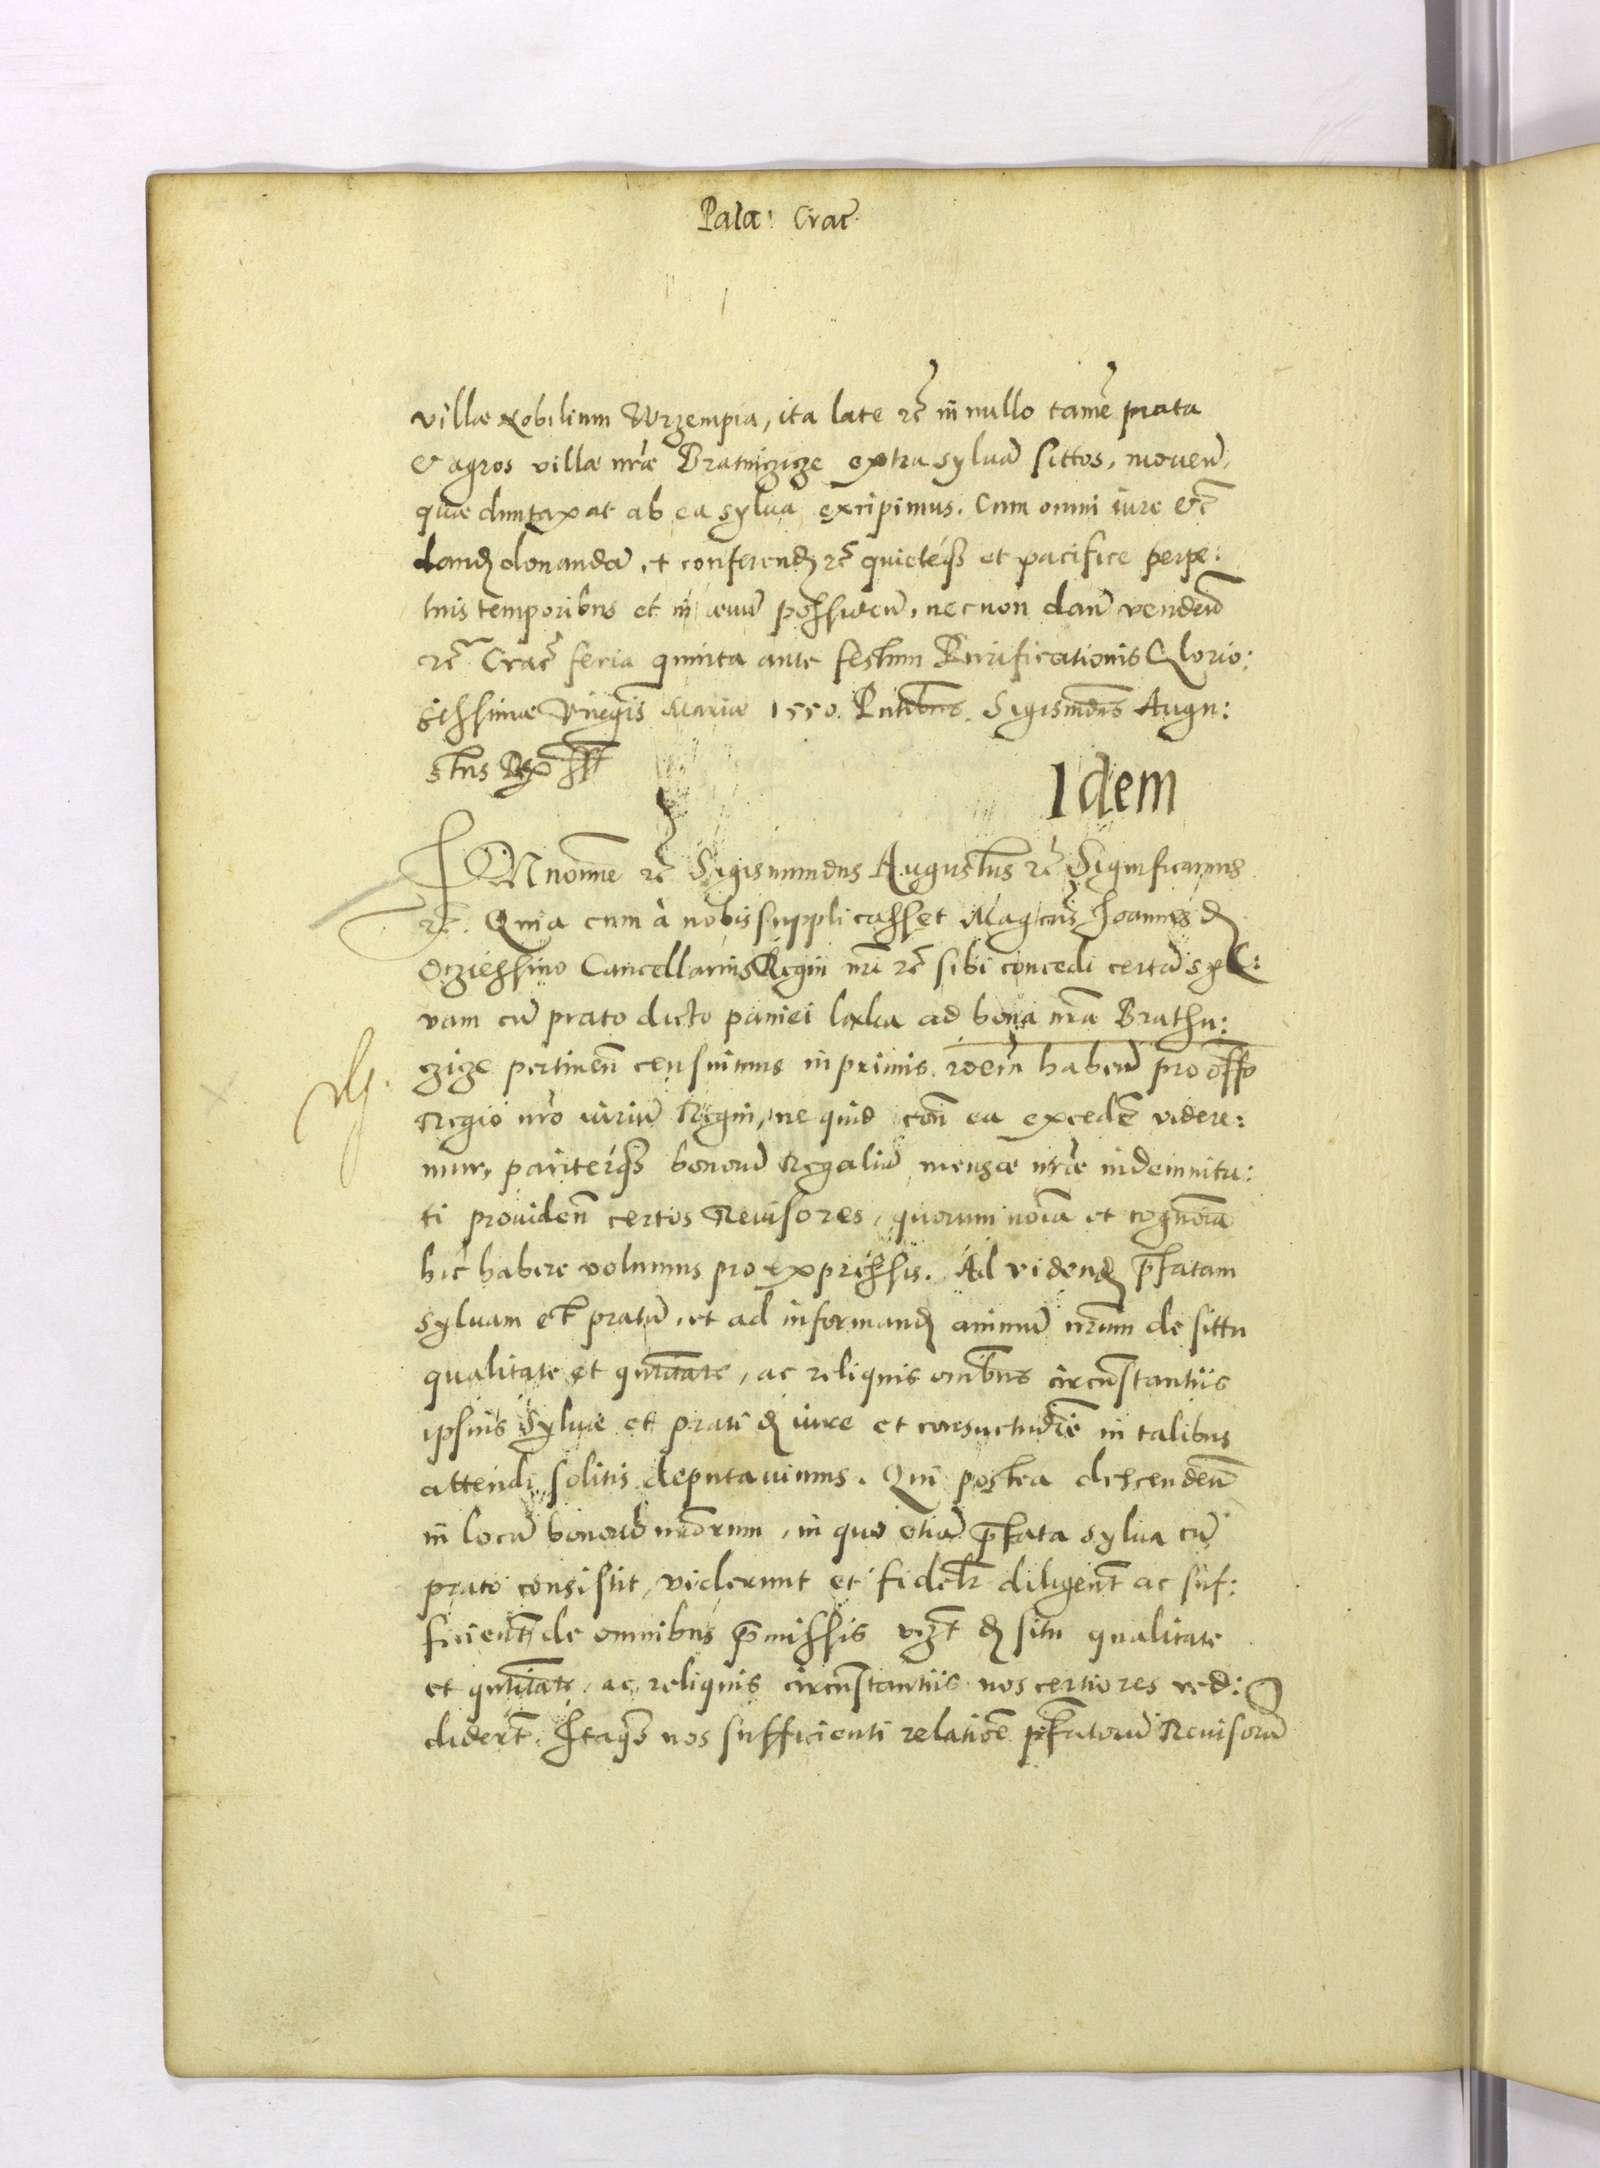 Pala: Crac
villæ Nobilium Wrzempia, ita late rc̃ in nullo tamẽ prata
& agros villæ nr̃æ Bratuczicze extra syluã sittos, mouen̄,
quæ duntaxat ab ea sylua excipimus. Cum omni iure etc̃
dand donandã, et conferend rc̃ quieteq3 et pacifice perpe:
tuis temporibus et in æuũ possiden̄, necnon dan̄ venden̄
rc̃ Crac̃ feria quinta ante festum Purificationis Glorio:
sissimæ Virgĩs Mariæ 1550. Pn̄tibus. Sigismũdus Augu:
stus Rex sst
Idem
IN nomine rc̃ Sigismundus Augustus rc̃ Significamus
rc̃. Quia cum à nobis supplicasset Mag̃cus Joannes d
Ocziessino Cancellarius Regni nr̃i rc̃ sibi concedi certã syl:
vam cũ prato dicto paniei laka ad bona nr̃a Brathu:
czicze pertinen̄ censuimus inprimis rõem haben̄ pro off̃o
Regio nr̃o iuriũ Regni, ne quid con̄ ea exceden̄ videre:
mur, pariterq3 bonorũ Regaliũ mensæ nr̃æ indemnita:
ti prouiden̄ certos Reuisores, quorum noĩa et cognoĩa
hic habere volumus pro expressis. Ad vidend p̃fatam
syluam et pratũ, et ad informand animũ nr̃um de sittu
qualitate et qũtitate, ac reliquis omĩbus circũstantiis
ipsius Syluæ et prati d iure et consuetudĩe in talibus
attendi solitis deputauimus. Qui postea descenden̄
in locũ bonorũ nr̃orum, in quo etiã p̃fata sylua cũ
prato consistit, viderunt et fidelr̃ diligent̃ ac suf:
ficient̃ de omnibus p̃missis vizt̃ d situ qualitate
et qũtitate, ac reliquis circũstantiis nos certiores red:
didert̃. Itaq3 nos sufficienti relatiõe p̃fatorũ Reuisorũ